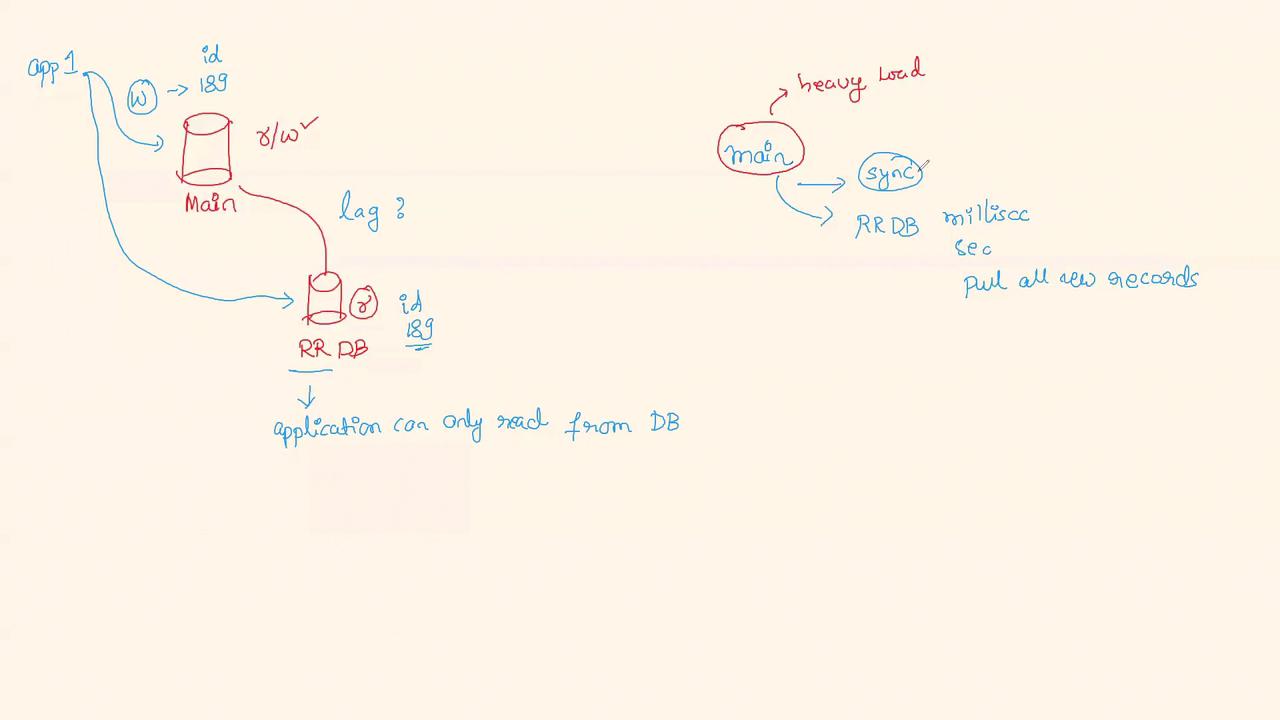 app1
id
w → 189
r/w ✓
Main
lag ?
r
id
189
RR DB
application can only read from DB
heavy load
main
sync
RR DB millisec
sec
pull all new records